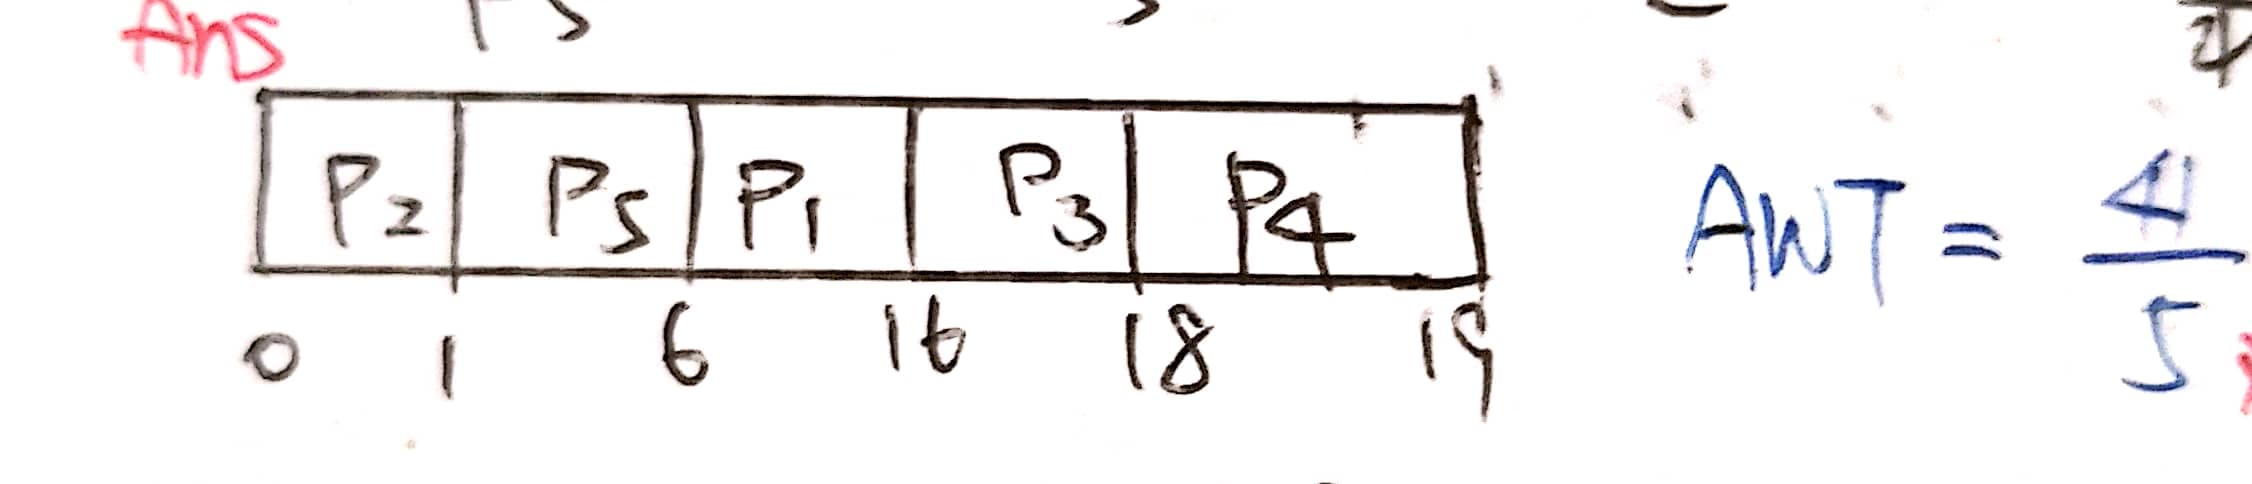 Ans
P2 P5 P1 P3 P4
0 1 6 16 18 19
AWT = 41/5